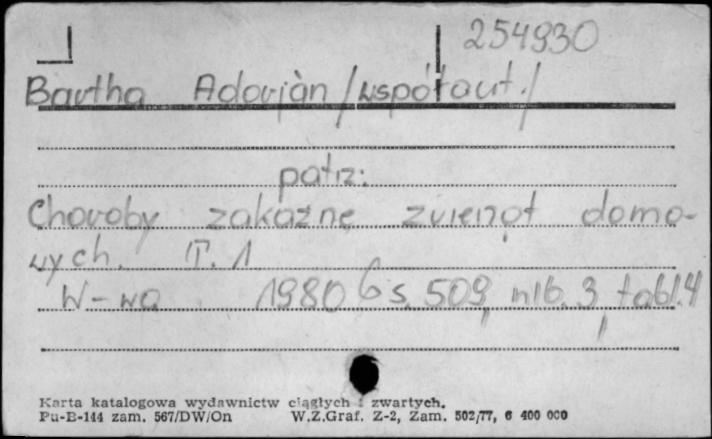 254930
Bartha Adorján /współaut./
patrz:
Choroby zakaźne zwierząt domo-
wych. T. 1
W-wa 1980 s. 509, nlb. 3, tabl. 4
Karta katalogowa wydawnictw ciągłych i zwartych.
Pu-B-144 zam. 567/DW/On W.Z.Graf. Z-2, Zam. 502/77, 6 400 000